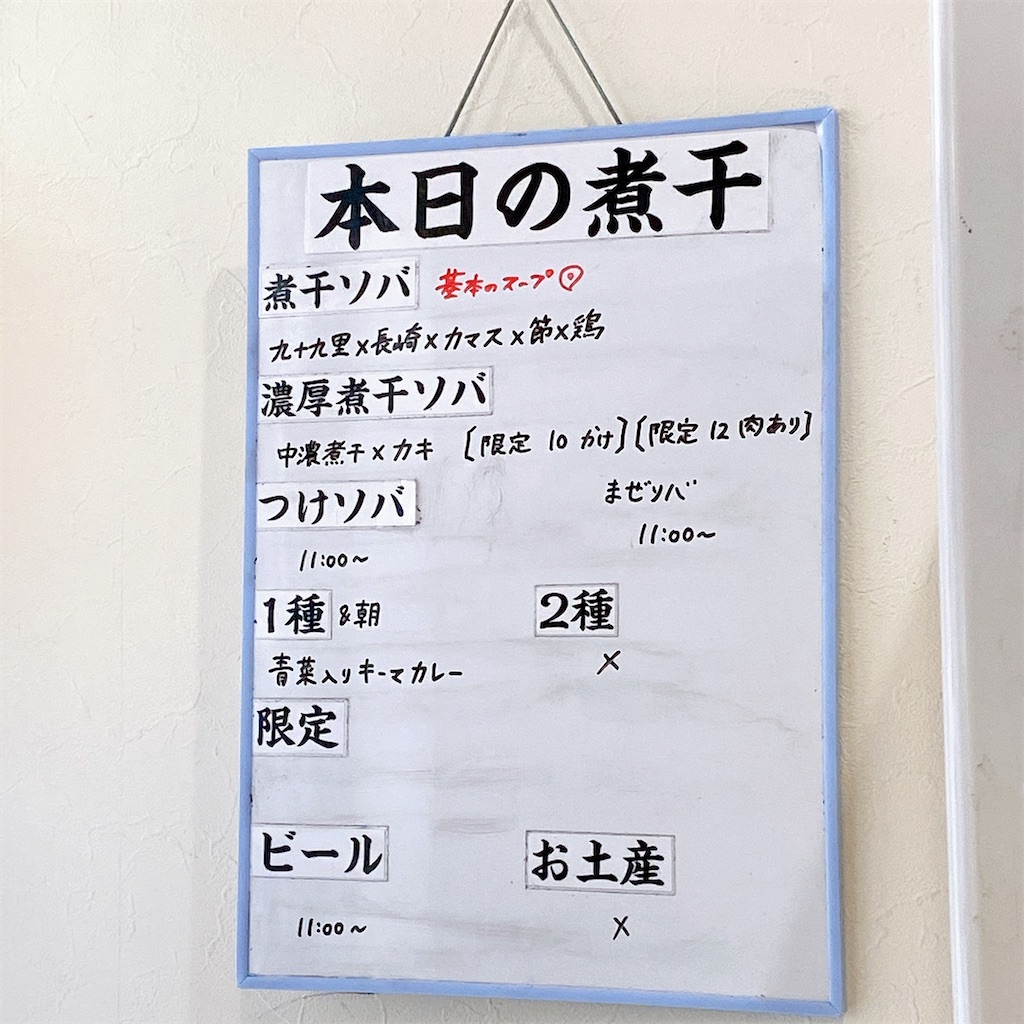 本日の煮干
煮干ソバ 基本のスープ
九十九里×長崎×カマス×節×鶏
濃厚煮干ソバ
中濃煮干×カキ [限定 10 かけ] [限定 12 肉あり]
つけソバ
11:00〜
まぜソバ
11:00〜
1種 &朝
青菜入りキーマカレー
2種
×
限定
ビール
11:00〜
お土産
×